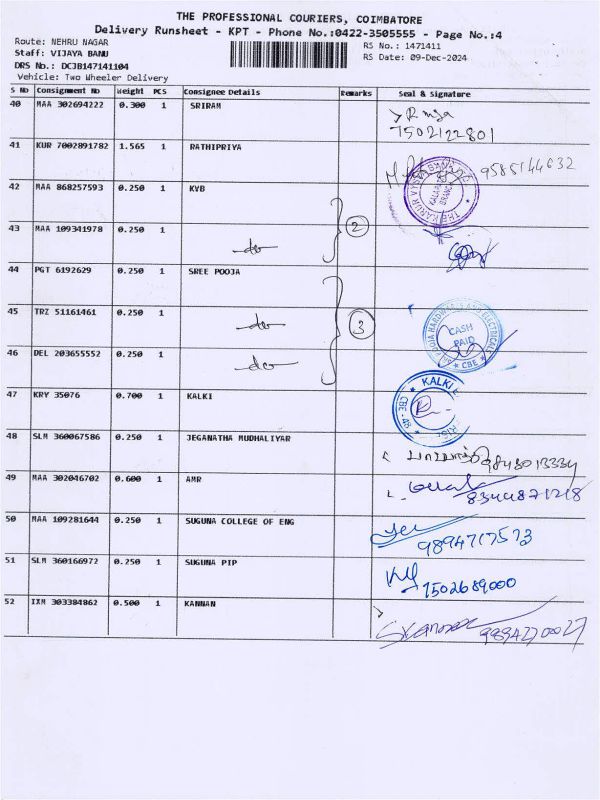 THE PROFESSIONAL COURIERS, COIMBATORE
Delivery Runsheet - KPT - Phone No.:0422-3505555 - Page No.:4
Route: NEHRU NAGAR
RS No.: 1471411
Staff: VIJAYA BANU
RS Date: 09-Dec-2024
DRS No.: DCJB147141104
Vehicle: Two Wheeler Delivery
S No Consignment No Weight PCS Consignee Details Remarks Seal & Signature
40 MAA 302694222 0.300 1 SRIRAM
7502122801
41 KUR 7002891782 1.565 1 RATHIPRIYA 9585144632
42 MAA 868257593 0.250 1 KVB
THE KARUR VYSYA BANK
BRANCH
43 MAA 109341978 0.250 1 -do- 2
44 PGT 6192629 0.250 1 SREE POOJA
45 TRZ 51161461 0.250 1 -do- 3
HARDWARES AND ELECTRICALS
CASH
PAID
CBE
46 DEL 203655552 0.250 1 -do-
47 KRY 35076 0.700 1 KALKI
KALKI
CBE-48
48 SLM 360067586 0.250 1 JEGANATHA MUDHALIYAR 9843013334
49 MAA 302046702 0.600 1 AMR 8344871218
50 MAA 109281644 0.250 1 SUGUNA COLLEGE OF ENG
9894717573
51 SLM 360166972 0.250 1 SUGUNA PIP
7502689000
52 IXM 303384862 0.500 1 KANNAN
9894270027